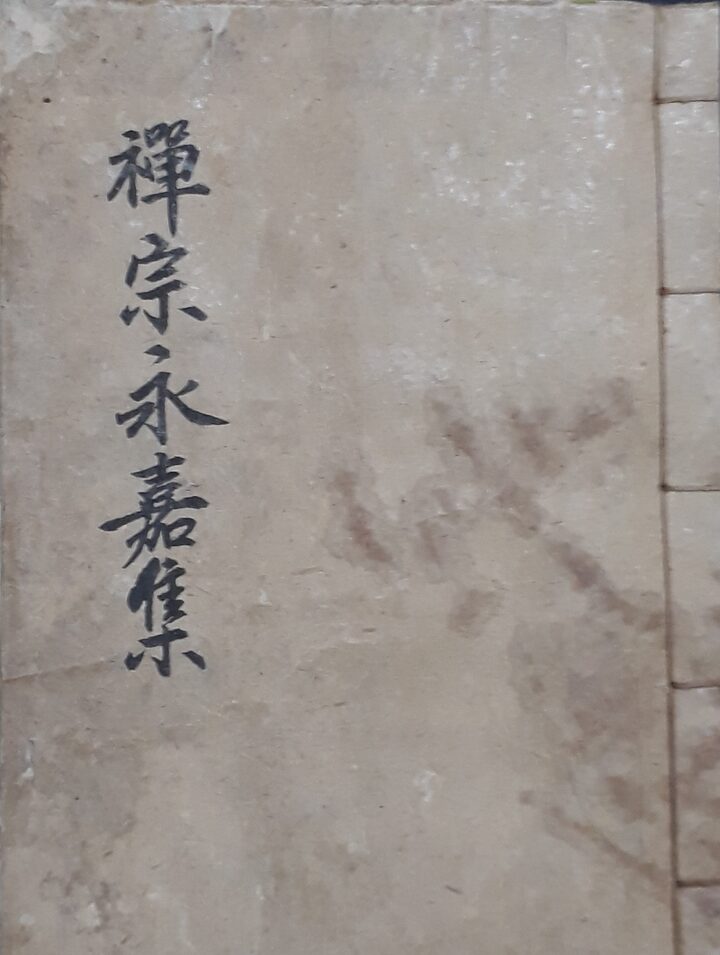 禪宗永嘉集